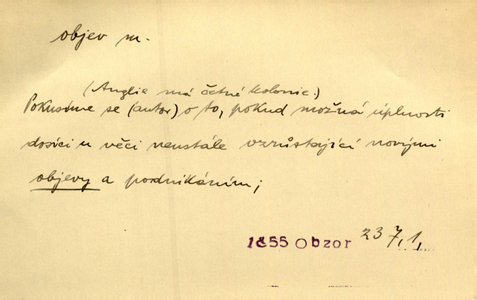 objev m.
(Anglie má četné kolonie.)
Pokusíme se (autor) o to, pokud možná úplnosti
dosíci u věci neustále vzrůstající novými
objevy a podnikáním;
1855 Obzor 23 7,1,